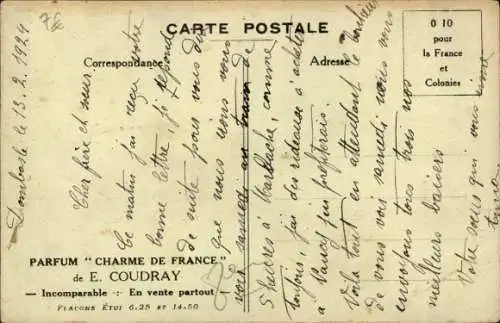 CARTE POSTALE
Correspondance
Adresse
0 10
pour
la France
et
Colonies
PARFUM "CHARME DE FRANCE"
de E. COUDRAY
— Incomparable — En vente partout —
FLACONS ÉTUI 6.25 ET 14-50
Dombasle le 13.2.1929
Cher frère et sœur
Ce matin j'ai reçu votre
bonne lettre, je réponds
de suite pour vous dire
que nous vous
samedi au train de
5 heures à Marbache, comme
toujours, j'ai du rideaux à acheter
à Nancy
Voilà tout en attendant le bonheur
de vous voir samedi nous vous
envoyons tous trois nos
meilleurs baisers
Votre sœur qui vous aime